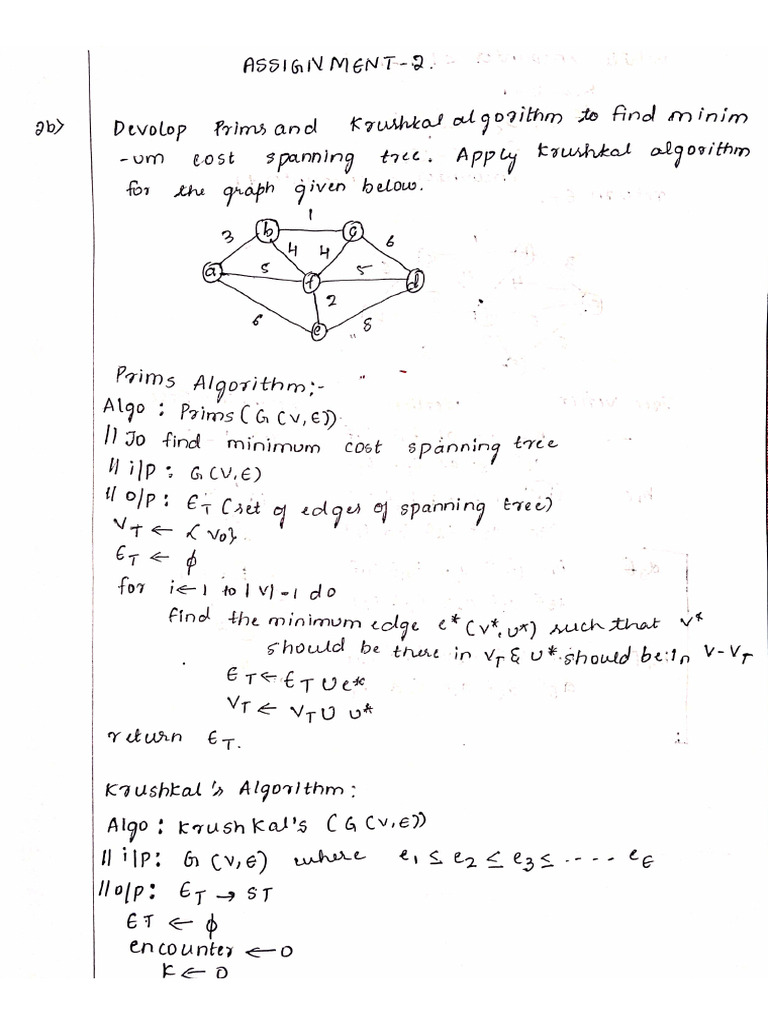 ASSIGNMENT-2.
2b> Devolop Prims and Krushkal algorithm to find minim
-um cost spanning tree. Apply Krushkal algorithm
for the graph given below.
1
3 b c 6
4 4
a 5 f 5 d
2
6 e 8
Prims Algorithm:-
Algo : Prims(G(V,E))
// To find minimum cost spanning tree
// i/p : G(V,E)
// o/p : ET (set of edges of spanning tree)
VT ← {v0}
ET ← ϕ
for i←1 to |V|-1 do
find the minimum edge e*(v*,u*) such that v*
should be there in VT & u* should be in V-VT
ET ← ET ∪ e*
VT ← VT ∪ u*
return ET.
Krushkal's Algorithm:
Algo : Krushkal's (G(V,E))
// i/p: G(V,E) where e1 ≤ e2 ≤ e3 ≤ ---- eE
// o/p: ET → ST
ET ← ϕ
encounter ← 0
K ← 0